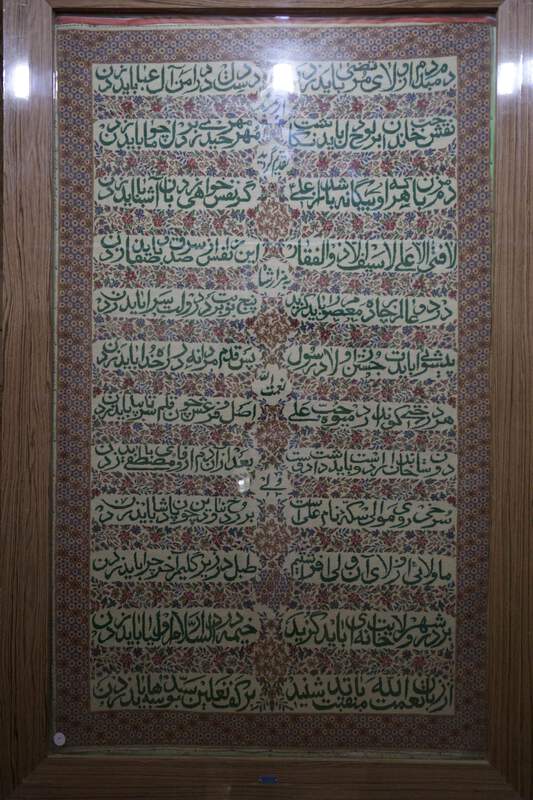 دم به دم دم از ولای مرتضی باید زدن دست دل در دامن آل عبا باید زدن
نقش حب خاندان بر لوح دل باید نگاشت مهر مهر حیدری بر دل چو ما باید زدن
دم مزن با هر که او بیگانه باشد از علی گر نفس خواهی زدن با آشنا باید زدن
لا فتی الا علی لا سیف الا ذوالفقار این نفس را از سر صدق و صفا باید زدن
در دو عالم چارده معصوم را باید گزید پنج نوبت بر در دولت سرا باید زدن
پیشوائی بایدت جستن ز اولاد رسول پس قدم مردانه در راه خدا باید زدن
هر درختی کو ندارد میوه حب علی اصل و فرعش چون قلم سر تا به پا باید زدن
دوستان خاندان را دوست باید داشت دوست بعد از آن دم از وفای مصطفی باید زدن
سرخی روی موالی سکه نام علی است بر رخ دنیا و دین چون پادشا باید زدن
ما لوائی از ولای آن ولی افراشتیم طبل در زیر گلیم آخر چرا باید زدن
بر در شهر ولایت خانه‌ای باید گزید خیمه در دارالسلام اولیا باید زدن
از زبان نعمت الله منقبت باید شنید بر کف نعلین سید بوسه‌ها باید زدن